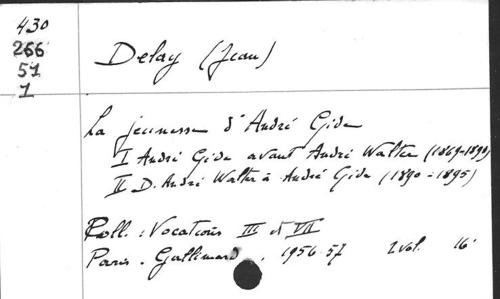 430
266
51
1
Delay (Jean)
La jeunesse d'André Gide
I André Gide avant André Walter (1869-1890)
II D. André Walter à André Gide (1890-1895)
Coll. : Vocations III et VII
Paris - Gallimard . 1956-57 2 vol. 16°